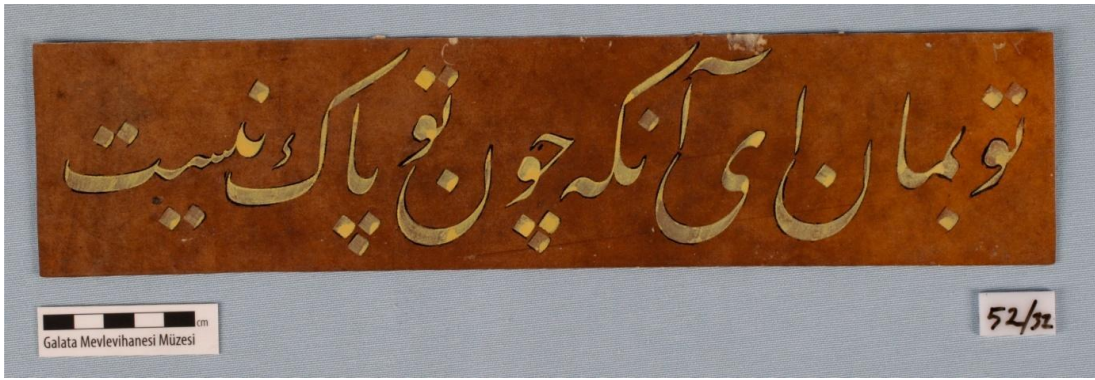 تو بمان ای آنکه چون تو پاک نیست
cm
Galata Mevlevihanesi Müzesi
52/32